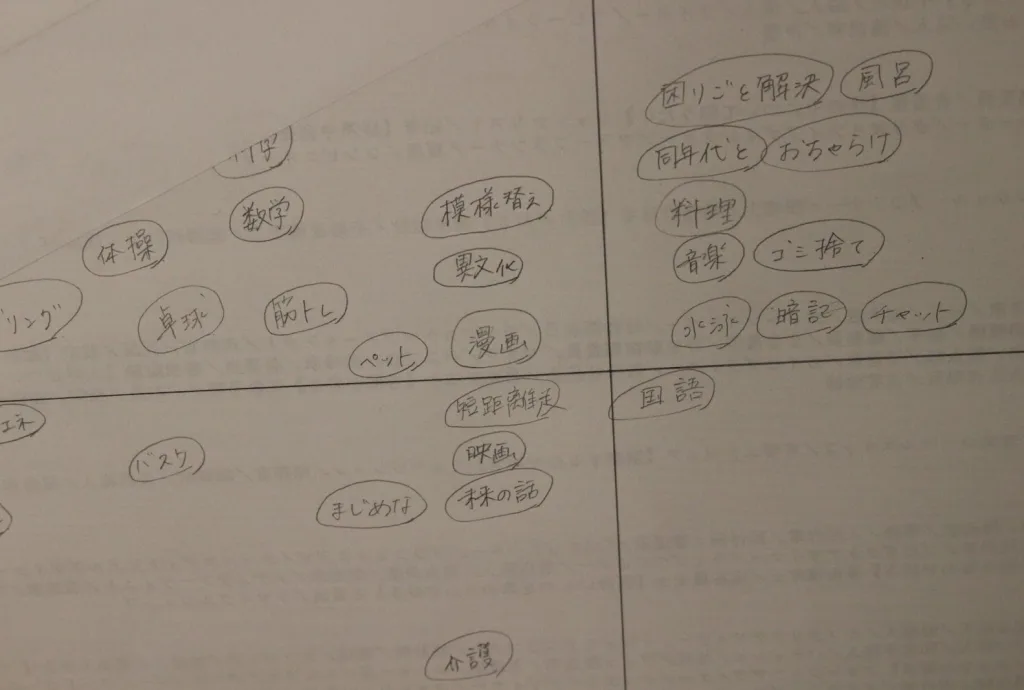 困りごと解決 風呂
同年代と おちゃらけ
数学 模様替え 料理
体操 異文化 音楽 ゴミ捨て
リング 卓球 筋トレ 水泳 暗記 チャット
ペット 漫画
短距離走 国語
エネ バスケ 映画
まじめな 未来の話
介護